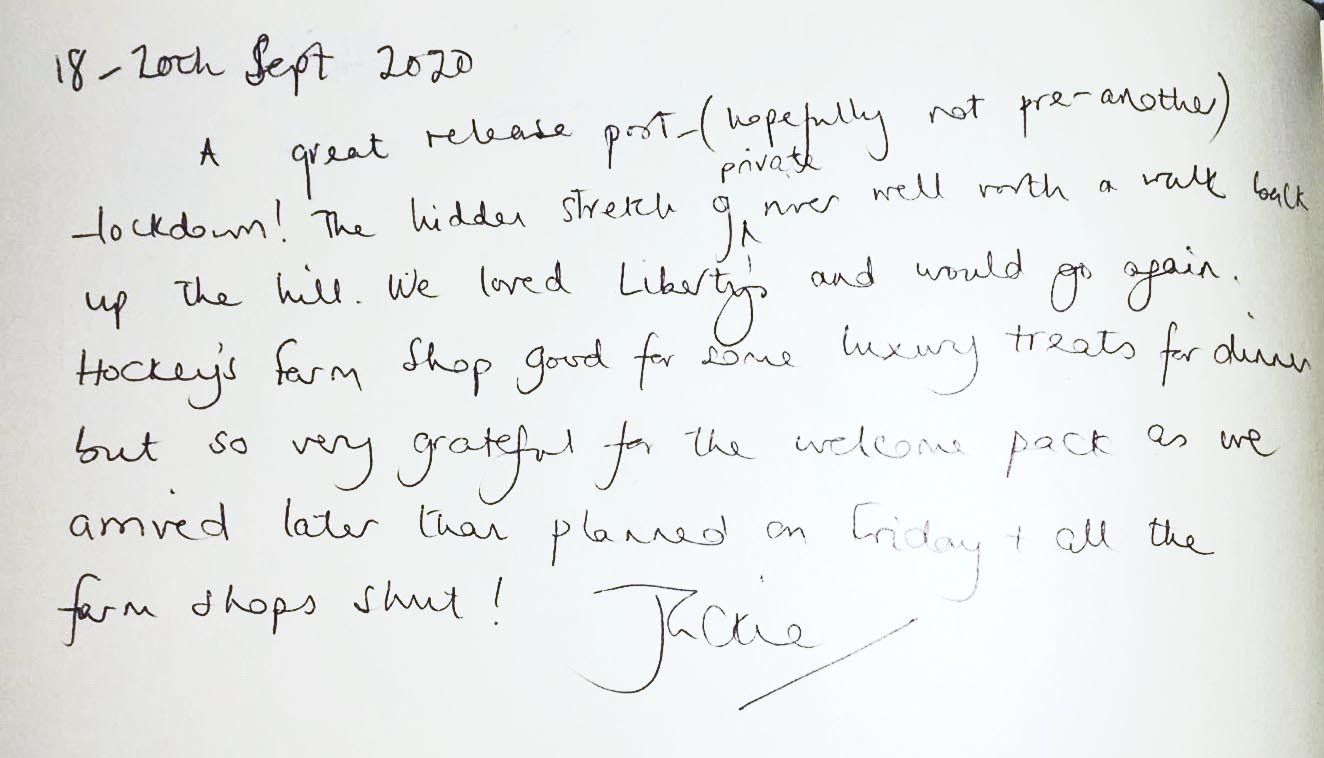 18 - 20th Sept 2020
A great release post-(hopefully not pre-another)
-lockdown! The hidden stretch of private river well worth a walk back
up the hill. We loved Liberty's and would go again.
Hockey's farm shop good for some luxury treats for dinner
but so very grateful for the welcome pack as we
arrived later than planned on Friday + all the
farm shops shut! Jackie